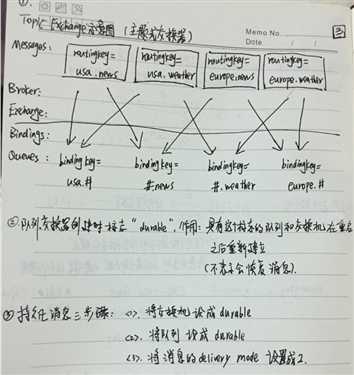 ①
Topic Exchange示意图 (主题式交换器)
Memo No.
Date / /
3
Messages: routingkey= usa.news routingkey= usa.weather routingkey= europe.news routingkey= europe.weather
Broker:
Exchange:
Bindings:
Queues: bindingkey= usa.# bindingkey= #.news bindingkey= #.weather bindingkey= europe.#
② 队列,交换器创建时标志 "durable". 作用: 具有这个标志的队列和交换机在重启
之后重新建立
(不会恢复消息).
③ 持久化消息三步骤: <1>. 将交换机设成durable
<2>. 将队列设成durable
<3>. 将消息的delivery mode 设置成2.